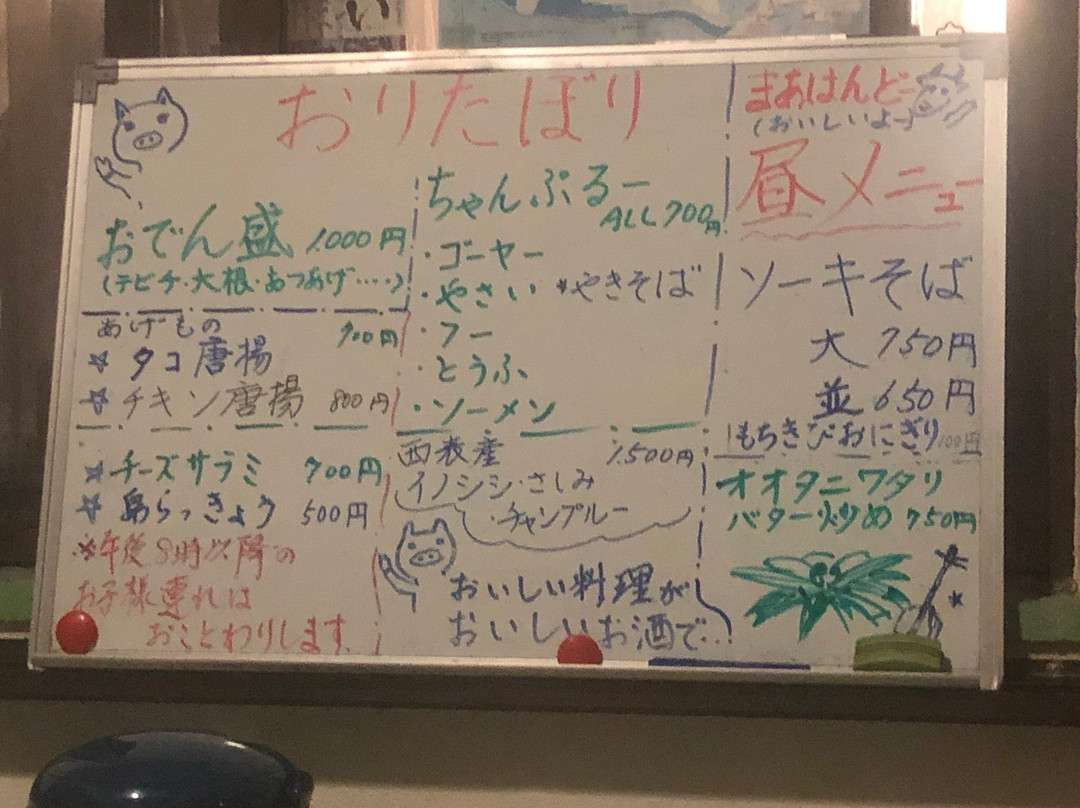 おりたぼり
おでん盛 1.000円
(テビチ・大根・あつあげ・・・・・)
あげもの
900円
☆タコ唐揚
☆チキン唐揚 800円
☆チーズサラミ 700円
☆島らっきょう 500円
※午後8時以降の
お子様連れは
おことわりします
ちゃんぷるー
ALL 700円
・ゴーヤー
・やさい *やきそば
・フー
・とうふ
・ソーメン
西表産 1.500円
イノシシ・さしみ
・チャンプルー
おいしい料理が
おいしいお酒で・・
まあはんどー
(おいしいよー)
昼メニュー
ソーキそば
大 750円
並 650円
もちきびおにぎり 100円
オオタニワタリ
バター炒め 750円